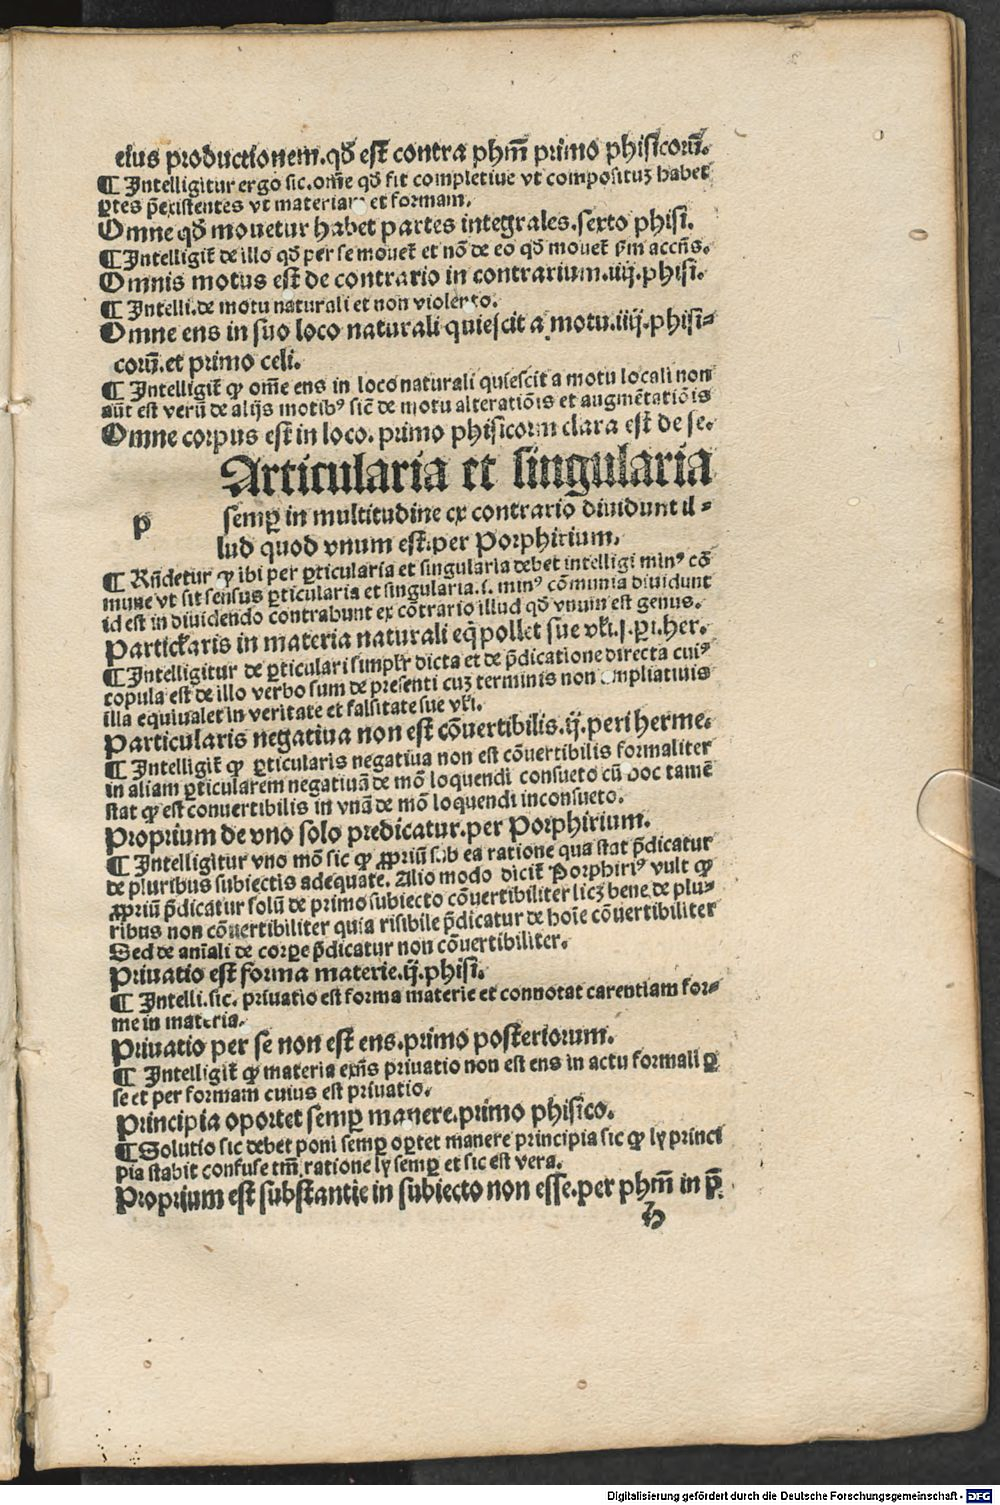 eius productionem.qđ est cōtra phm̄ primo phisicoꝝ.
¶ Intelligitur ergo sic.om̄e qđ fit completiue vt composituꝫ habet
ꝑtes p̄existentes vt materiam et formam.
Omne qđ mouetur habet partes integrales.sexto phisi.
¶ Intelligit̄ de illo qđ per se mouet̄ et nō de eo qđ mouet̄ ẜm accn̄s.
Omnis motus est de contrario in contrarium.iiij.phisi.
¶ Intelli.de motu naturali et non violento.
Omne ens in suo loco naturali quiescit a motu.iiij.phisi⸗
coꝝ.et primo celi.
¶ Intelligit̄ ꝙ om̄e ens in loco naturali quiescit a motu locali non
aūt est verū de alijs motibꝰ sic̄ de motu alteratiōis et augmētatiōis
Omne corpus est in loco.primo phisicorum clara est de se.
Articularia et singularia
p semꝑ in multitudine ex contrario diuidunt il⸗
lud quod vnum est.per Porphirium.
¶ Rn̄detur ꝙ ibi per ꝑticularia et singularia debet intelligi minꝰ cō
mune vt sit sensus ꝑticularia et singularia.i. minꝰ cōmunia diuidunt
id est in diuidendo contrahunt ex cōtrario illud qđ vnum est genus.
Particl̓aris in materia naturali eq̄pollet sue vl̓i.j.ꝑi.her.
¶ Intelligitur de ꝑticulari simplr̄ dicta et de p̄dicatione directa cuiꝰ
copula est de illo verbo sum de presenti cuꝫ terminis non ampliatiuis
illa equiualet in veritate et falsitate sue vl̓i.
Particularis negatiua non est cōuertibilis.ij.peri herme.
¶ Intelligit̄ ꝙ ꝑticularis negatiua non est cōuertibilis formaliter
in aliam ꝑticularem negatiuā de mō loquendi consueto cū hoc tamē
stat ꝙ est conuertibilis in vnā de mō loquendi inconsueto.
Proprium de vno solo predicatur.per Porphirium.
¶ Intelligitur vno mō sic ꝙ ꝓpriū sub ea ratione qua stat p̄dicatur
de pluribus subiectis adequate. Alio modo dicit̄ Porphiriꝰ vult ꝙ
ꝓpriū p̄dicatur solū de primo subiecto cōuertibiliter licꝫ bene de plu⸗
ribus non cōuertibiliter quia risibile p̄dicatur de hoīe cōuertibiliter
Sed de aniāli de corꝑe p̄dicatur non cōuertibiliter.
Priuatio est forma materie.ij.phisi.
¶ Intelli.sic. priuatio est forma materie et connotat carentiam for⸗
me in materia.
Priuatio per se non est ens.primo posteriorum.
¶ Intelligit̄ ꝙ materia exn̄s priuatio non est ens in actu formali ꝑ
se et per formam cuius est priuatio.
Principia oportet semꝑ manere.primo phisico.
¶ Solutio sic debet poni semꝑ oꝑtet manere principia sic ꝙ ly princi
pia stabit confuse tm̄ ratione ly semꝑ et sic est vera.
Proprium est substantie in subiecto non esse.per phm̄ in p̄.
h
Digitalisierung gefördert durch die Deutsche Forschungsgemeinschaft - DFG